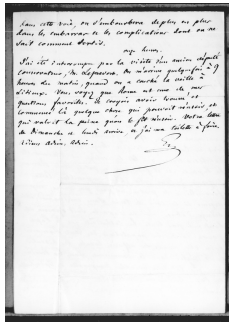 dans cette voie, on s'embourbera de plus en plus
dans les embarras et les complications dont on ne
sait comment sortir.
onze heures.
J'ai été interrompu par la visite d'un ancien député
conservateur, M. On m'arrive quelquefois à 9
heures du matin, quand on a couché la veille à
Lisieux. Vous voyez que Rome est une de mes
questions favorites. Je croyais avoir trouvé et
commencé là quelque chose qui pouvait réussir, et
qui valait la peine qu'on le fît réussir. Votre lettre
de Dimanche et lundi arrive et j'ai ma toilette à faire.
Adieu. Adieu.